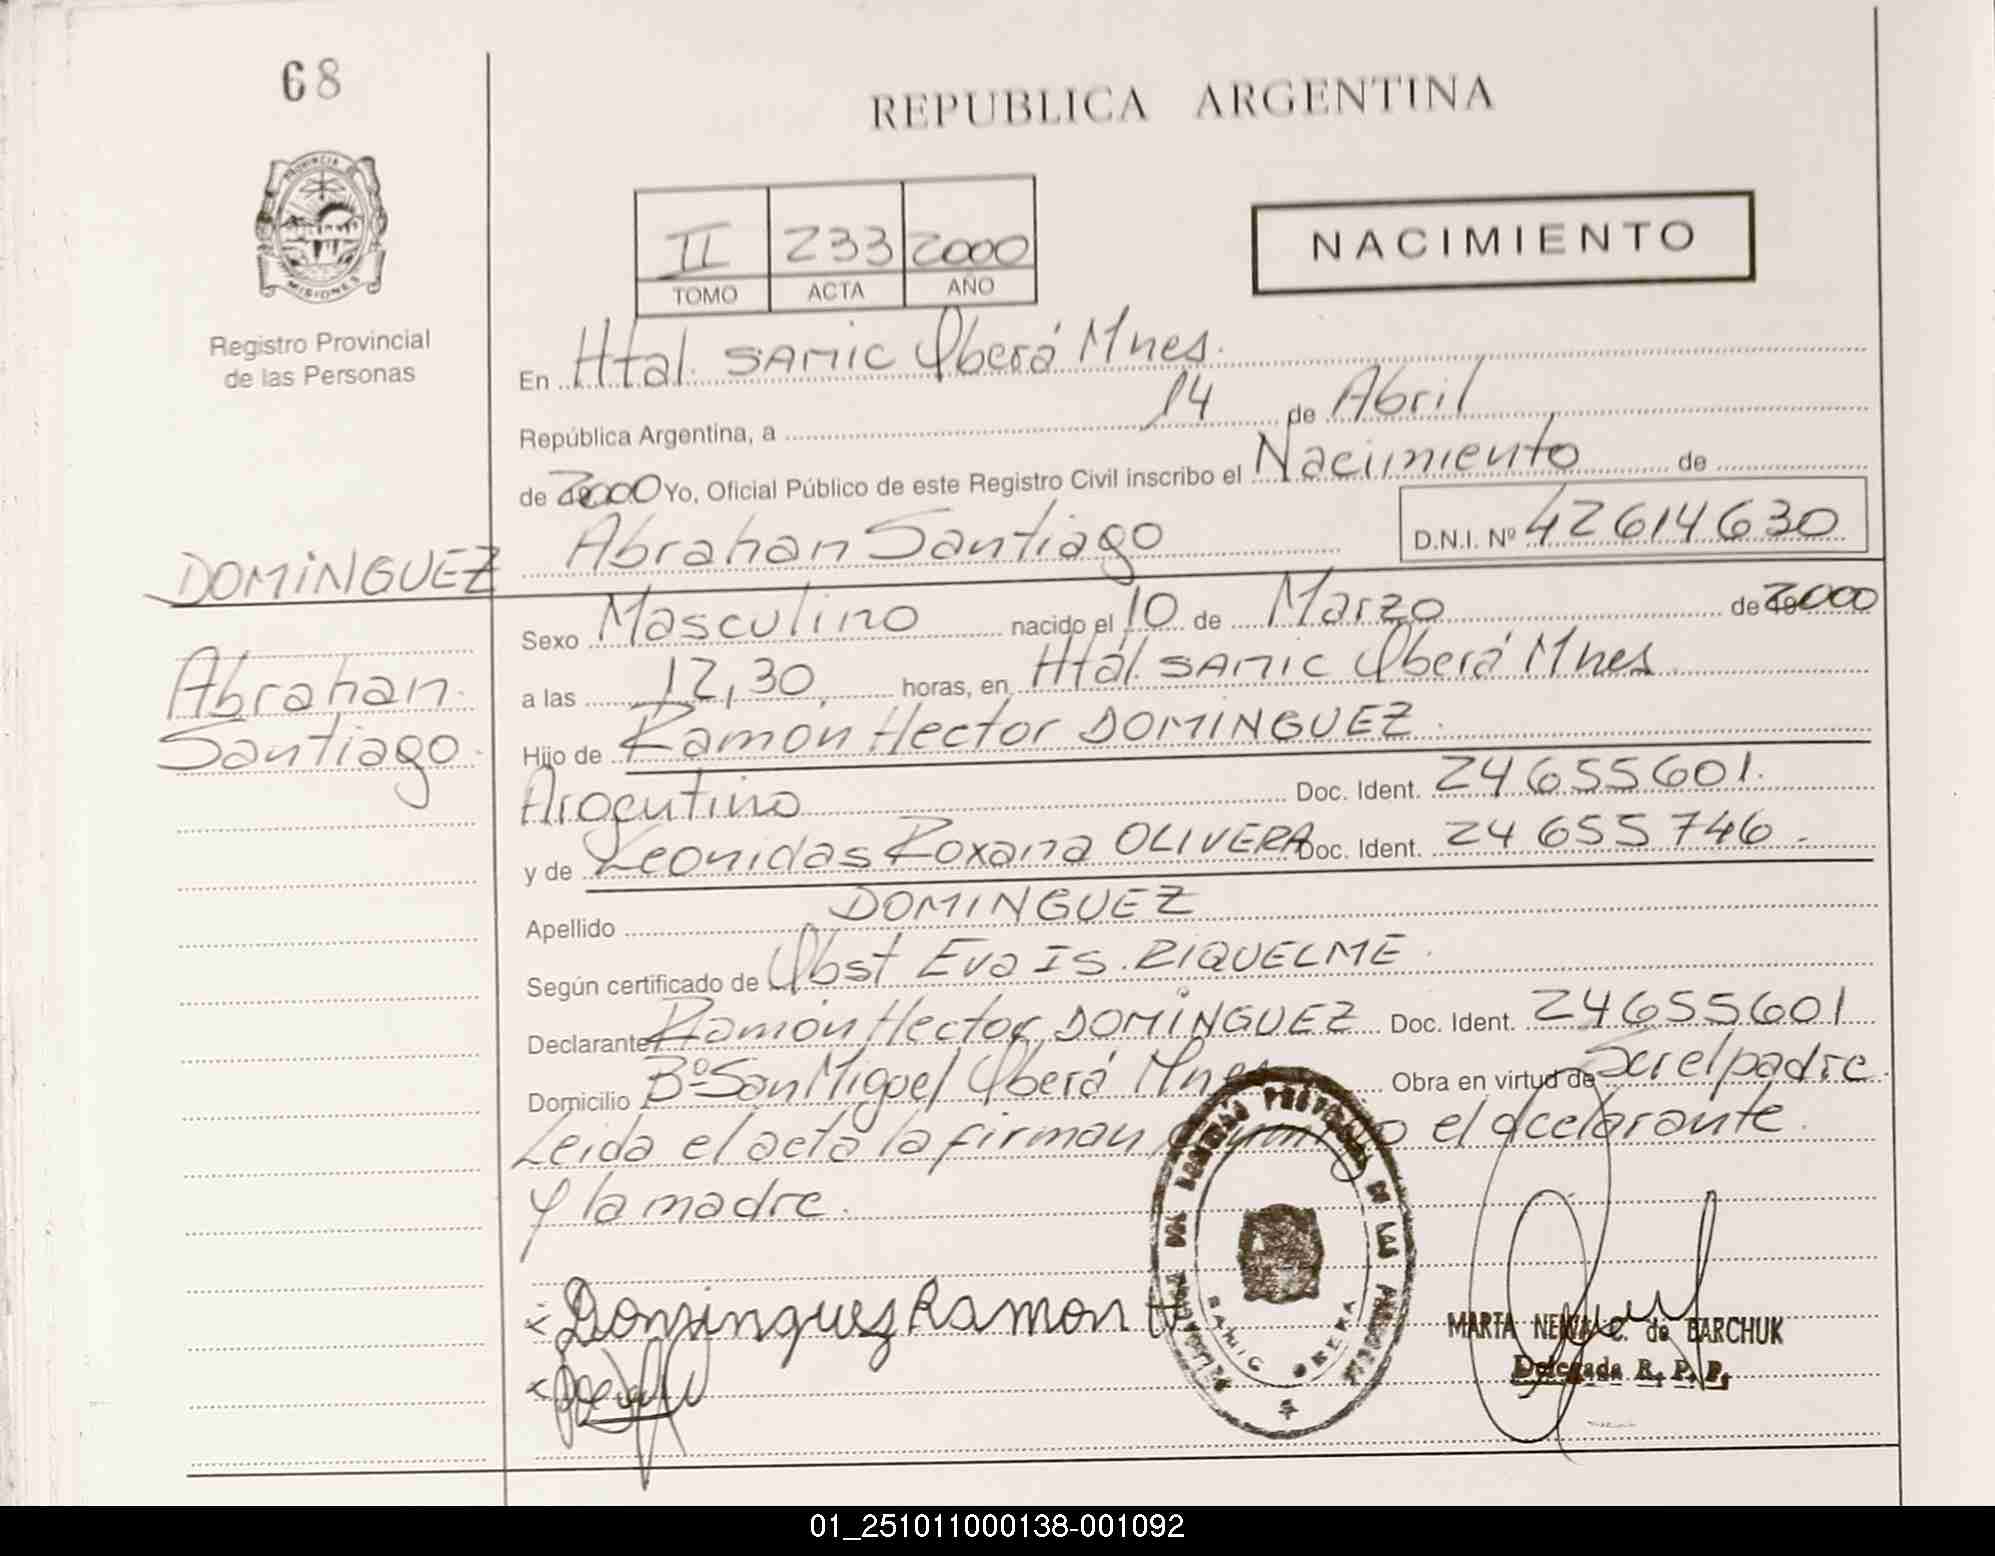 68
REPUBLICA ARGENTINA
PROVINCIA DE
MISIONES
Registro Provincial
de las Personas
II 233 2000
TOMO ACTA AÑO
NACIMIENTO
En Htal. SAMIC Oberá Mnes.
República Argentina, a 14 de Abril
de 2000 Yo, Oficial Público de este Registro Civil inscribo el Nacimiento de
Abrahan Santiago D.N.I. Nº 42614630
DOMiNGUEZ
Abrahan
Santiago
Sexo Masculino nacido el 10 de Marzo de 2000
a las 12,30 horas, en Htal. SAMIC Oberá Mnes
Hijo de Ramon Hector DOMINGUEZ
Argentino Doc. Ident. 24655601.
y de Leonidas Roxana OLIVERA Doc. Ident. 24 655 746.
Apellido DOMINGUEZ
Según certificado de Obst Eva Is. RIQUELME
Declarante Ramón Hector DOMiNGUEZ Doc. Ident. 24655601
Domicilio Bº San Miguel Oberá Mnes Obra en virtud de Ser el padre
Leida el acta la firman el dcelarante
y la madre.
x Dominguez Ramon H
SAMIC OBERA
MARTA C. de BARCHUK
Delegada R. P. P.
01_251011000138-001092